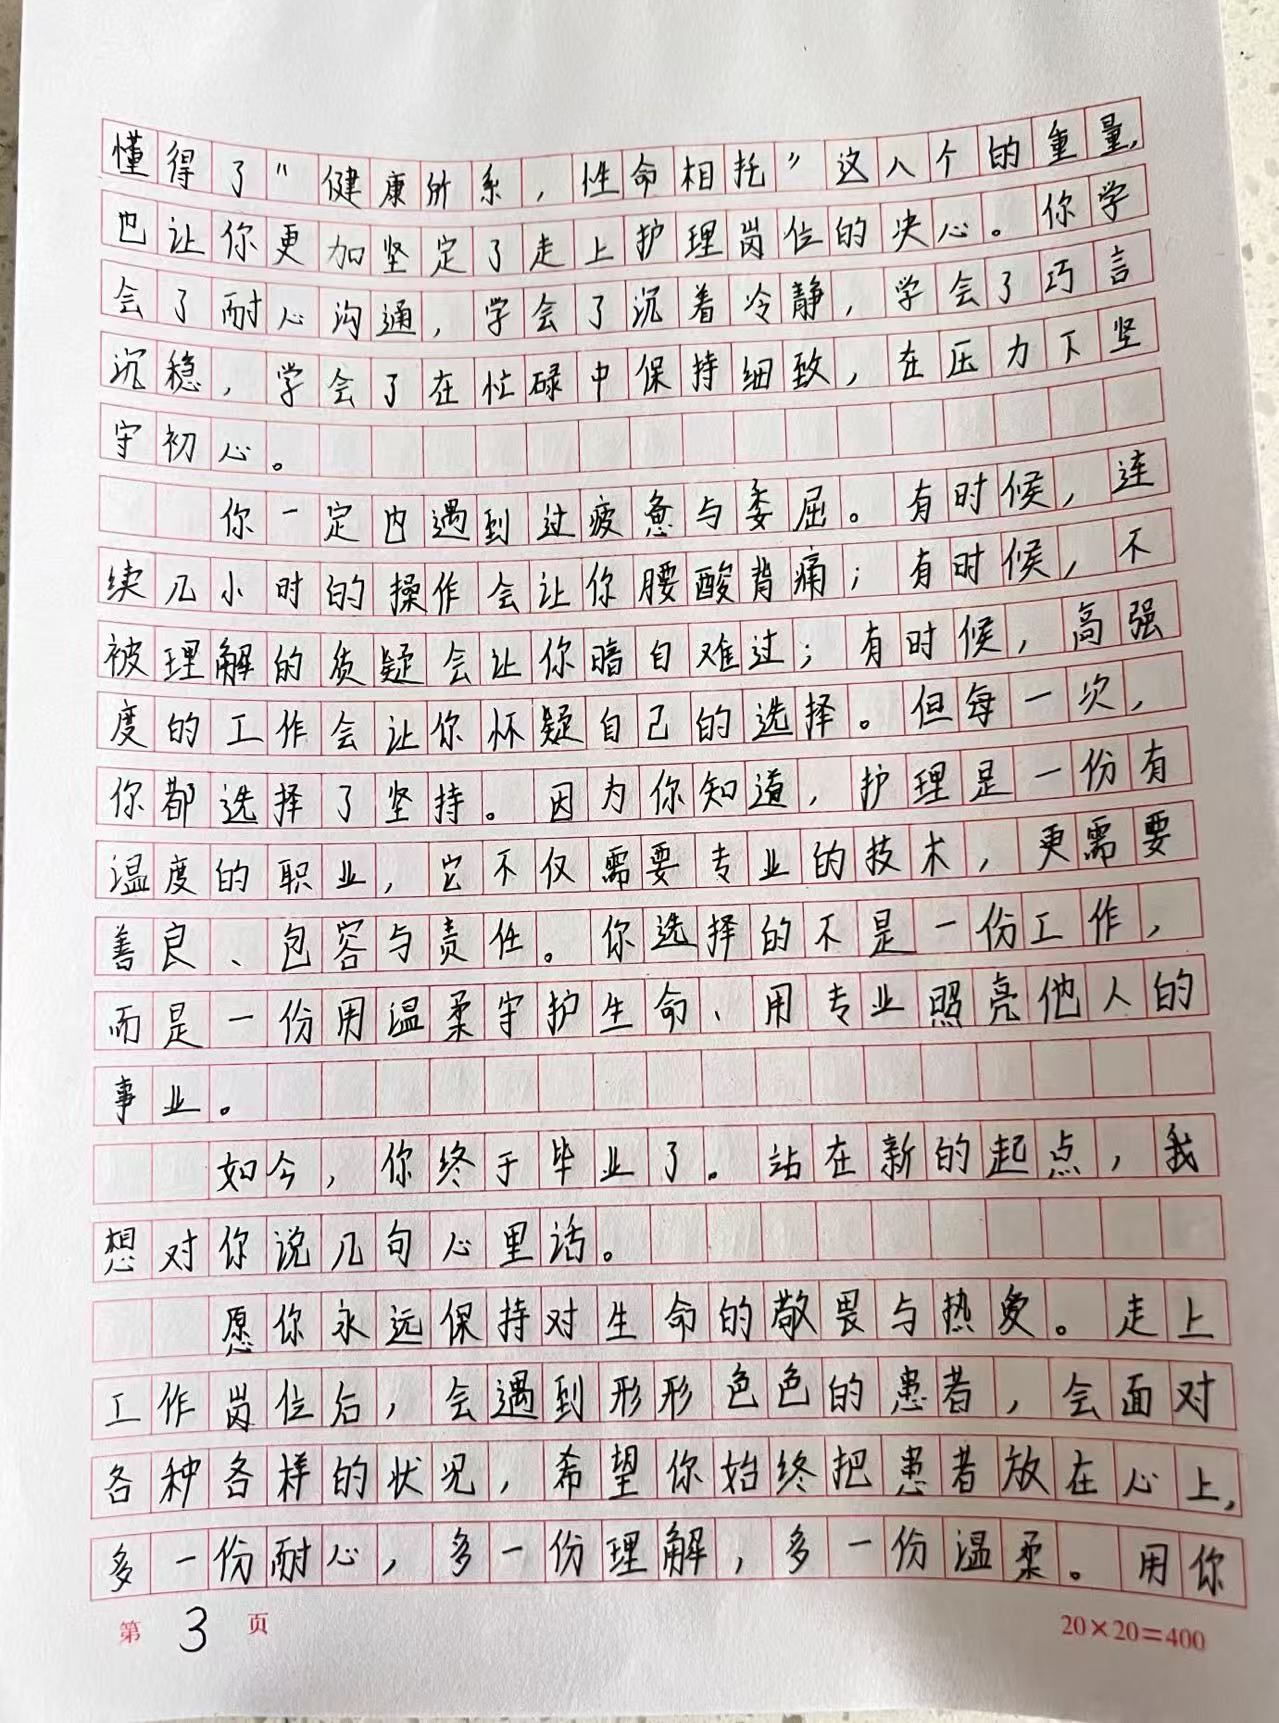 懂得了“健康所系，性命相托”这八个的重量，
也让你更加坚定了走上护理岗位的决心。你学
会了耐心沟通，学会了沉着冷静，学会了巧言
沉稳，学会了在忙碌中保持细致，在压力下坚
守初心。
你一定内遇到过疲惫与委屈。有时候，连
续几小时的操作会让你腰酸背痛；有时候，不
被理解的质疑会让你暗自难过；有时候，高强
度的工作会让你怀疑自己的选择。但每一次，
你都选择了坚持。因为你知道，护理是一份有
温度的职业，它不仅需要专业的技术，更需要
善良、包容与责任。你选择的不是一份工作，
而是一份用温柔守护生命、用专业照亮他人的
事业。
如今，你终于毕业了。站在新的起点，我
想对你说几句心里话。
愿你永远保持对生命的敬畏与热爱。走上
工作岗位后，会遇到形形色色的患者，会面对
各种各样的状况，希望你始终把患者放在心上，
多一份耐心，多一份理解，多一份温柔。用你
第 3 页
20×20=400